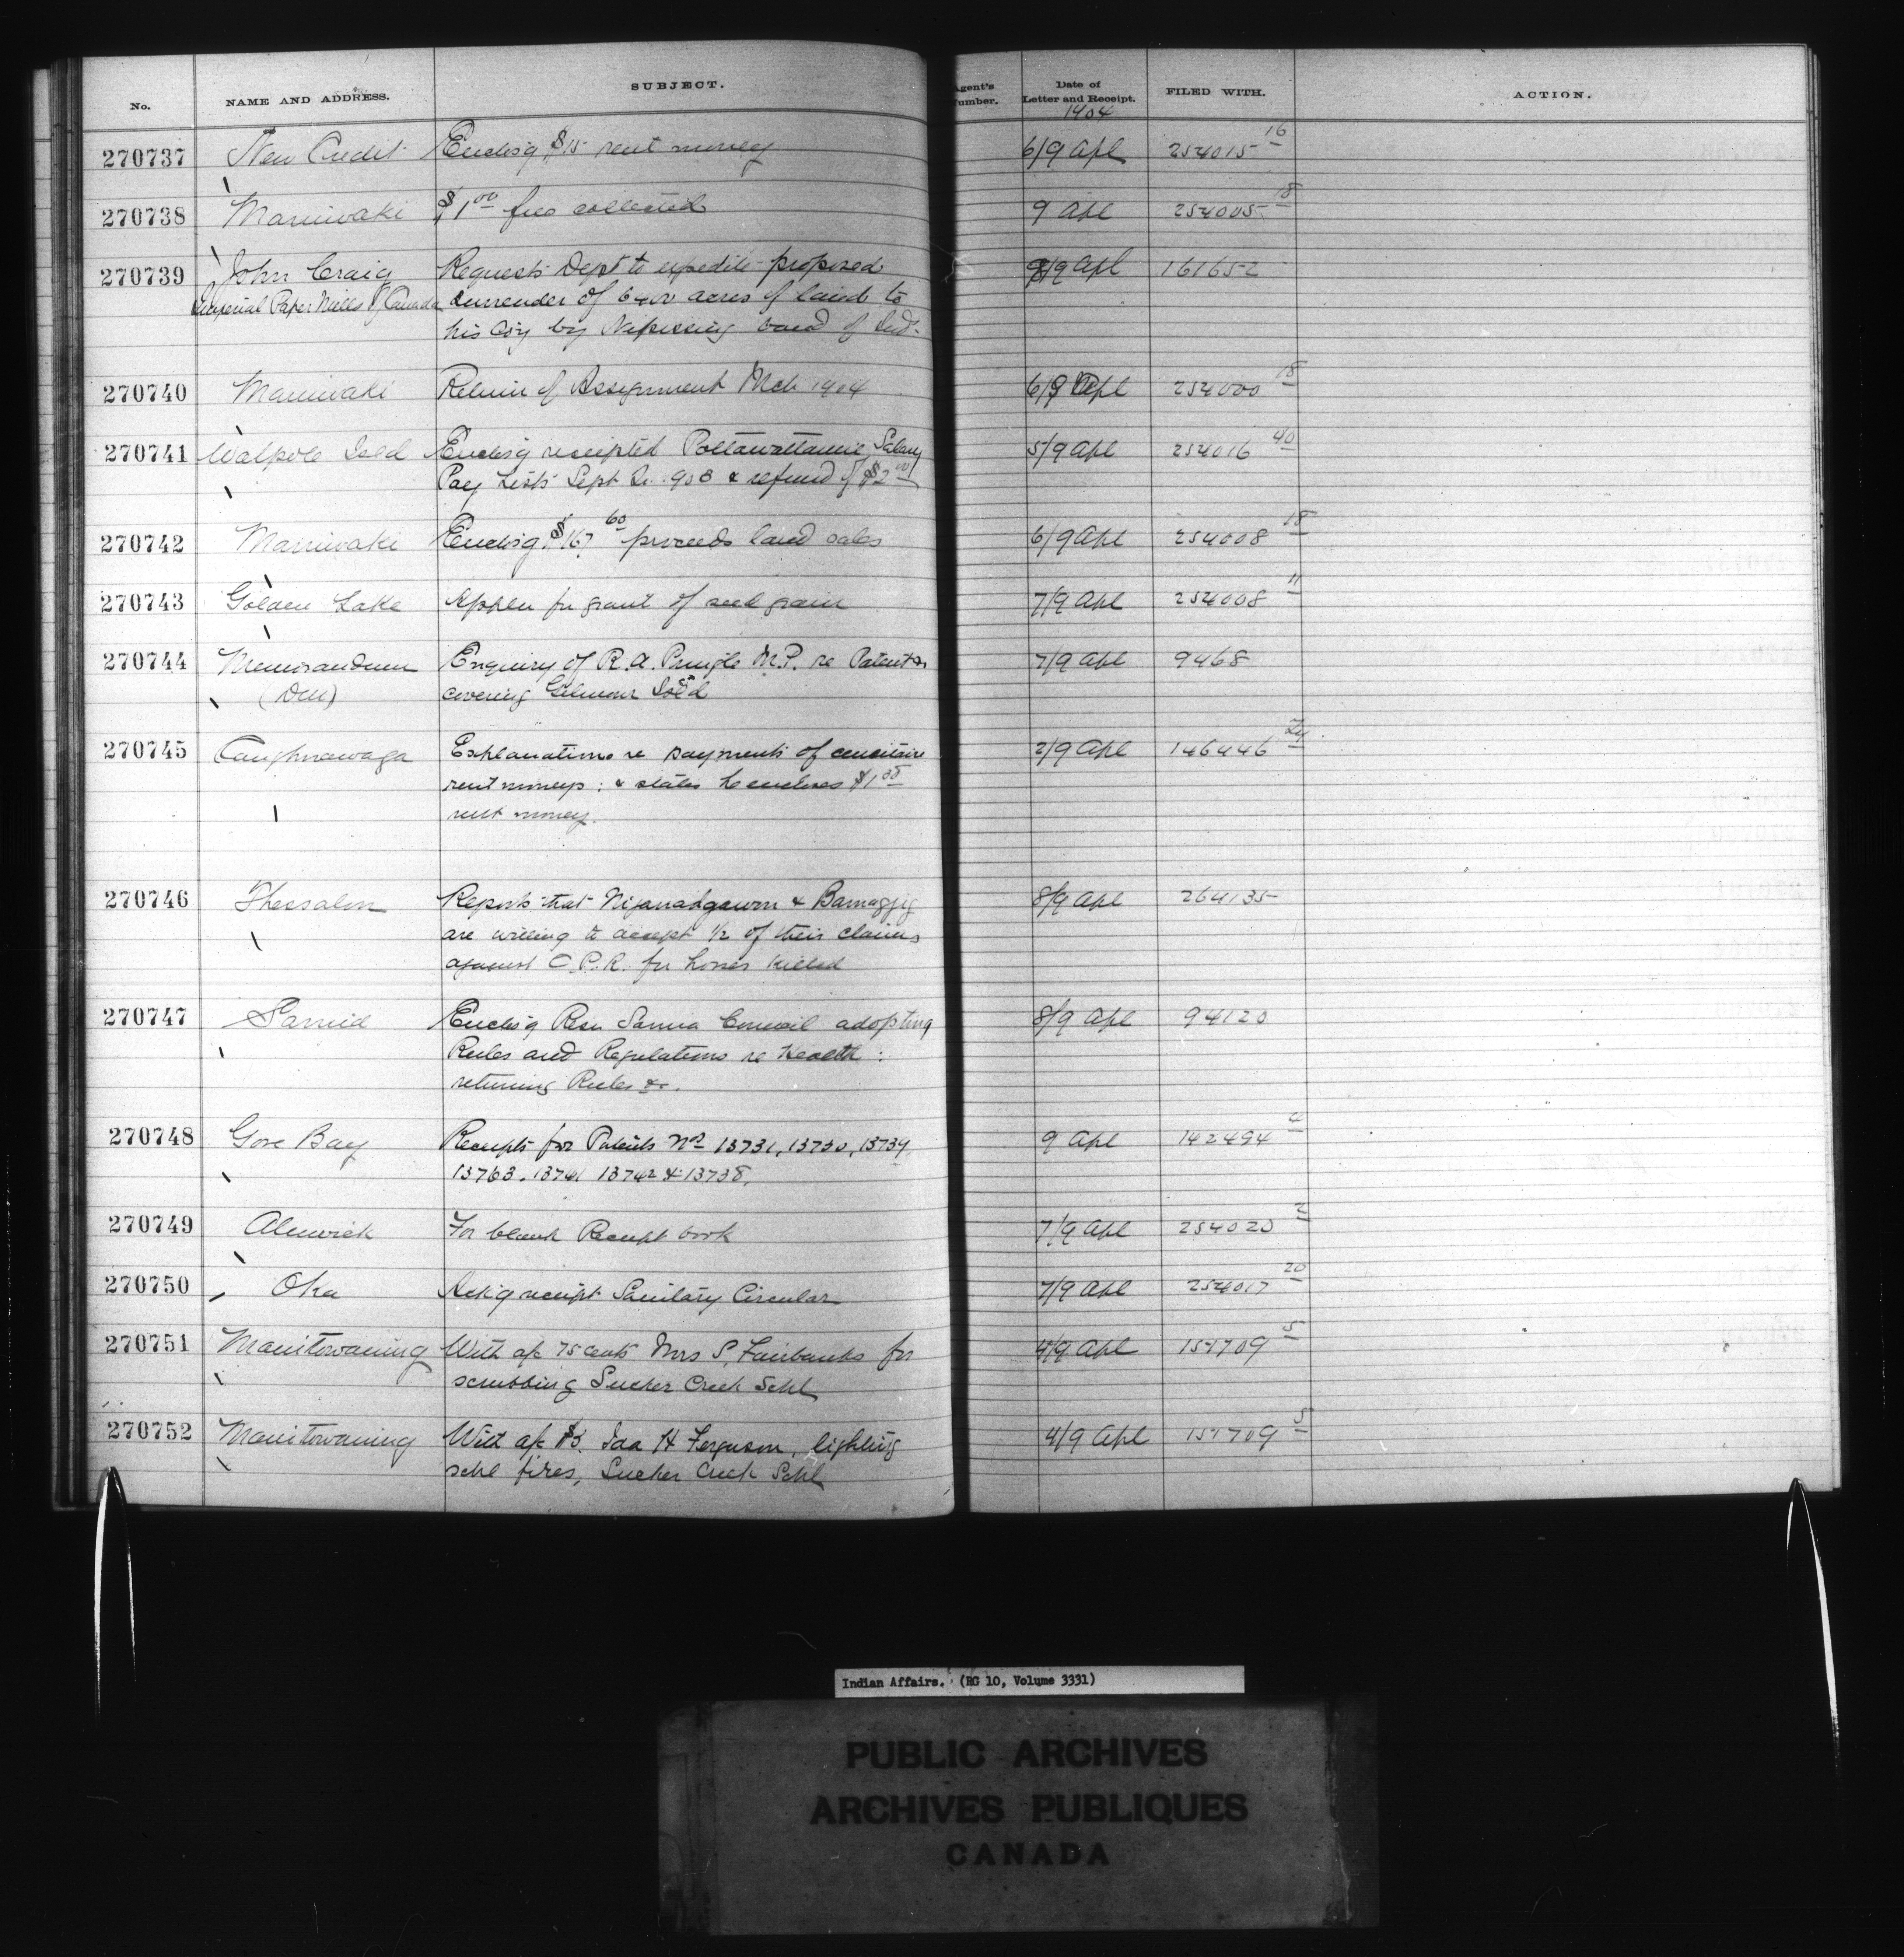 No.
NAME AND ADDRESS.
SUBJECT.
Agent's Number.
Date of Letter and Receipt.
FILED WITH.
ACTION.
1904
270737 New Credit Enclos'g $15 rent money 6/9 Apl 254015 16
270738 Maniwaki $1 00 fees collected 9 Apl 254005 18
270739 John Craig Requests Dept to expedite proposed 8/9 Apl 161652
Imperial Paper Mills of Canada surrender of 6400 acres of land to
his Coy by Nipissing band of Inds.
270740 Maniwaki Return of Assignment Mch 1904 6/9 Apl 254000 18
270741 Walpole Isld Enclos'g receipted Pottawattamie Salary 5/9 Apl 254016 40
Pay Lists Sept Qr. 903 & refund of $2 00
270742 Maniwaki Enclos'g $167 60 proceeds land sales 6/9 Apl 254008 18
270743 Golden Lake Appln for grant of seed grain 7/9 Apl 254008 11
270744 Memorandum Enquiry of R. A. Pringle M.P. re Patents 7/9 Apl 9468
covering Gilmour Isl'd
270745 Caughnawaga Explanations re payments of 2/9 Apl 146446 24
rent moneys : & states he encloses $1
rent money.
270746 Thessalon Reports that & 8/9 Apl 264135
are willing to accept 1/2 of their claims
against C.P.R. for horses killed
270747 Sarnia Enclos'g Resn Sarnia Council adopting 8/9 Apl 94120
Rules and Regulations re Health :
returning Rules &c.
270748 Gore Bay Receipts for Patents No 13731, 13730, 13739 9 Apl 142494 4
13763. 13741 13742 & 13738.
270749 Alnwick For blank Receipt book 7/9 Apl 254020 2
270750 Oka Ack'g receipt Sanitary Circular 7/9 Apl 254017 20
270751 Manitowaning With a/c 75 cents Mrs S. Fairbanks for 4/9 Apl 157709 5
scrubbing Sucker Creek Schl
270752 Manitowaning With a/c $3. Ida H Ferguson, lighting 4/9 Apl 157709 5
schl fires, Sucker Creek Schl
Indian Affairs. (RG 10, Volume 3331)
PUBLIC ARCHIVES
ARCHIVES PUBLIQUES
CANADA